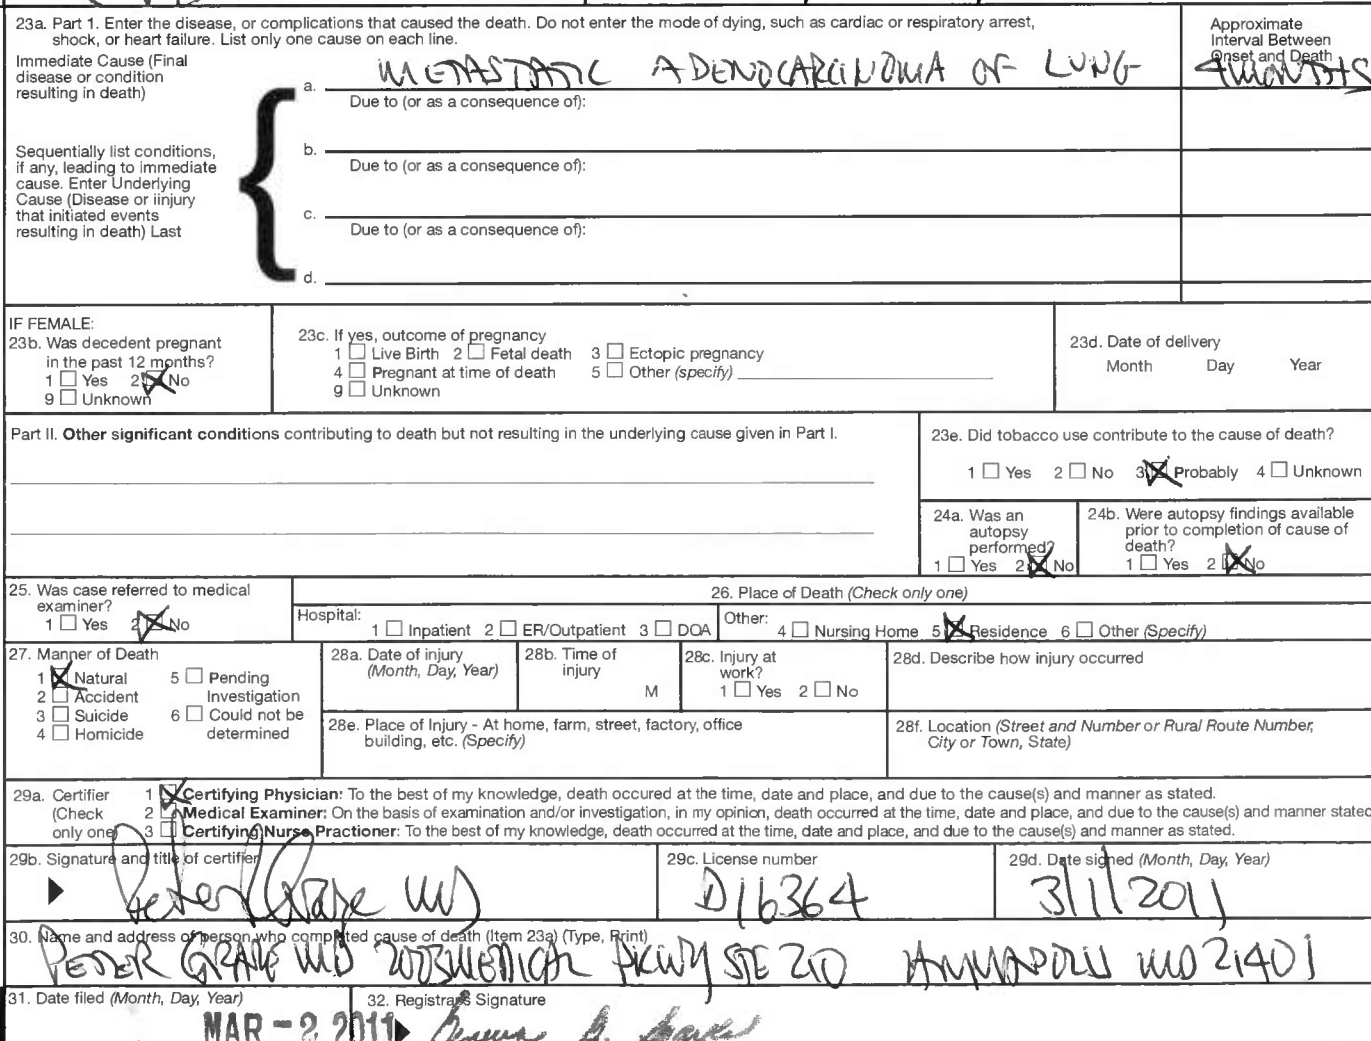 23a. Part 1. Enter the disease, or complications that caused the death. Do not enter the mode of dying, such as cardiac or respiratory arrest,
shock, or heart failure. List only one cause on each line.
Approximate
Interval Between
Onset and Death
Immediate Cause (Final
disease or condition
resulting in death)
a. METASTATIC ADENOCARCINOMA OF LUNG 4 MONTHS
Due to (or as a consequence of):
Sequentially list conditions,
if any, leading to immediate
cause. Enter Underlying
Cause (Disease or iinjury
that initiated events
resulting in death) Last
b.
Due to (or as a consequence of):
c.
Due to (or as a consequence of):
d.
IF FEMALE:
23b. Was decedent pregnant
in the past 12 months?
1 ☐ Yes 2 ☒ No
9 ☐ Unknown
23c. If yes, outcome of pregnancy
1 ☐ Live Birth 2 ☐ Fetal death 3 ☐ Ectopic pregnancy
4 ☐ Pregnant at time of death 5 ☐ Other (specify)
9 ☐ Unknown
23d. Date of delivery
Month Day Year
Part II. Other significant conditions contributing to death but not resulting in the underlying cause given in Part I.
23e. Did tobacco use contribute to the cause of death?
1 ☐ Yes 2 ☐ No 3 ☒ Probably 4 ☐ Unknown
24a. Was an
autopsy
performed?
1 ☐ Yes 2 ☒ No
24b. Were autopsy findings available
prior to completion of cause of
death?
1 ☐ Yes 2 ☒ No
25. Was case referred to medical
examiner?
1 ☐ Yes 2 ☒ No
26. Place of Death (Check only one)
Hospital: 1 ☐ Inpatient 2 ☐ ER/Outpatient 3 ☐ DOA
Other: 4 ☐ Nursing Home 5 ☒ Residence 6 ☐ Other (Specify)
27. Manner of Death
1 ☒ Natural 5 ☐ Pending
2 ☐ Accident Investigation
3 ☐ Suicide 6 ☐ Could not be
4 ☐ Homicide determined
28a. Date of injury
(Month, Day, Year)
28b. Time of
injury
M
28c. Injury at
work?
1 ☐ Yes 2 ☐ No
28d. Describe how injury occurred
28e. Place of Injury - At home, farm, street, factory, office
building, etc. (Specify)
28f. Location (Street and Number or Rural Route Number,
City or Town, State)
29a. Certifier
(Check
only one)
1 ☒ Certifying Physician: To the best of my knowledge, death occured at the time, date and place, and due to the cause(s) and manner as stated.
2 ☐ Medical Examiner: On the basis of examination and/or investigation, in my opinion, death occurred at the time, date and place, and due to the cause(s) and manner stated
3 ☐ Certifying Nurse Practioner: To the best of my knowledge, death occurred at the time, date and place, and due to the cause(s) and manner as stated.
29b. Signature and title of certifier
Peter Graze MD
29c. License number
D16364
29d. Date signed (Month, Day, Year)
3/1/2011
30. Name and address of person who completed cause of death (Item 23a) (Type, Print)
PETER GRAZE MD 2003 MEDICAL PKWY STE 210 ANNAPOLIS MD 21401
31. Date filed (Month, Day, Year)
MAR - 2 2011
32. Registrars Signature